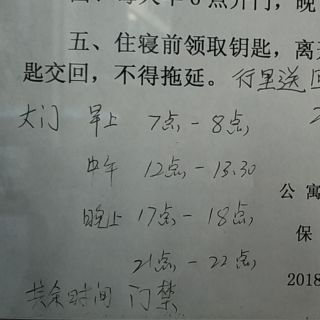 早 6 点开门，晚
五、住寝前领取钥匙，离
匙交回，不得拖延。行里送
大门 早上 7点-8点
中午 12点-13.30
公寓
晚上 17点-18点
保
21点-22点
2018
其余时间 门禁